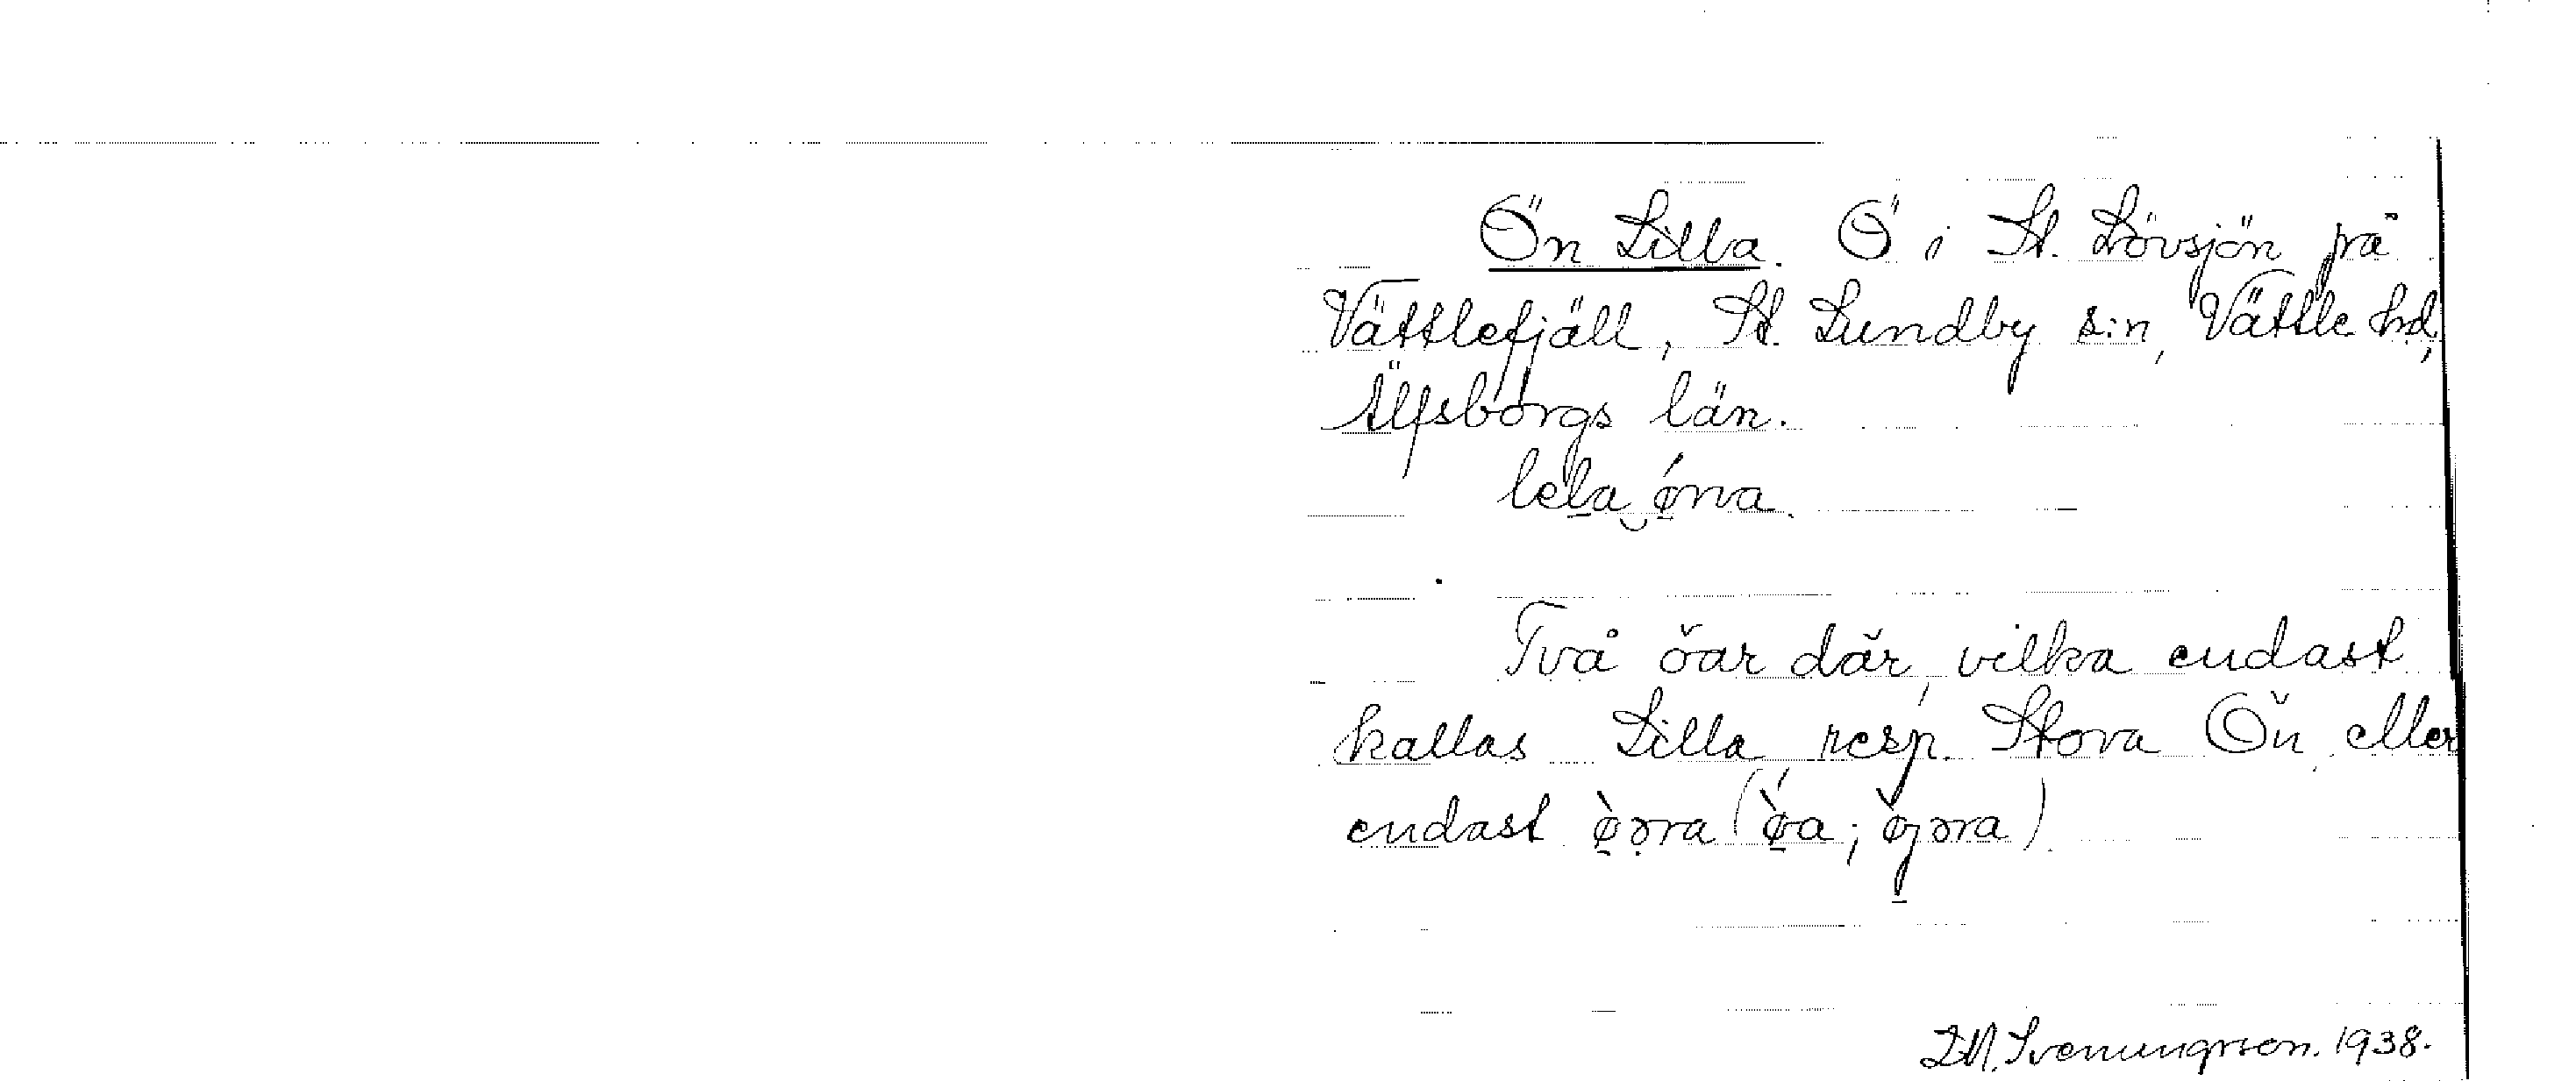 Ön Lilla. Ö i St. Lövsjön på
Vättlefjäll, St. Lundby s:n, Vättle hd,
Älfsborgs län.
Två öar där, vilka endast
kallas Lilla resp. Stora Ön eller
endast
Svenungsson. 1938.